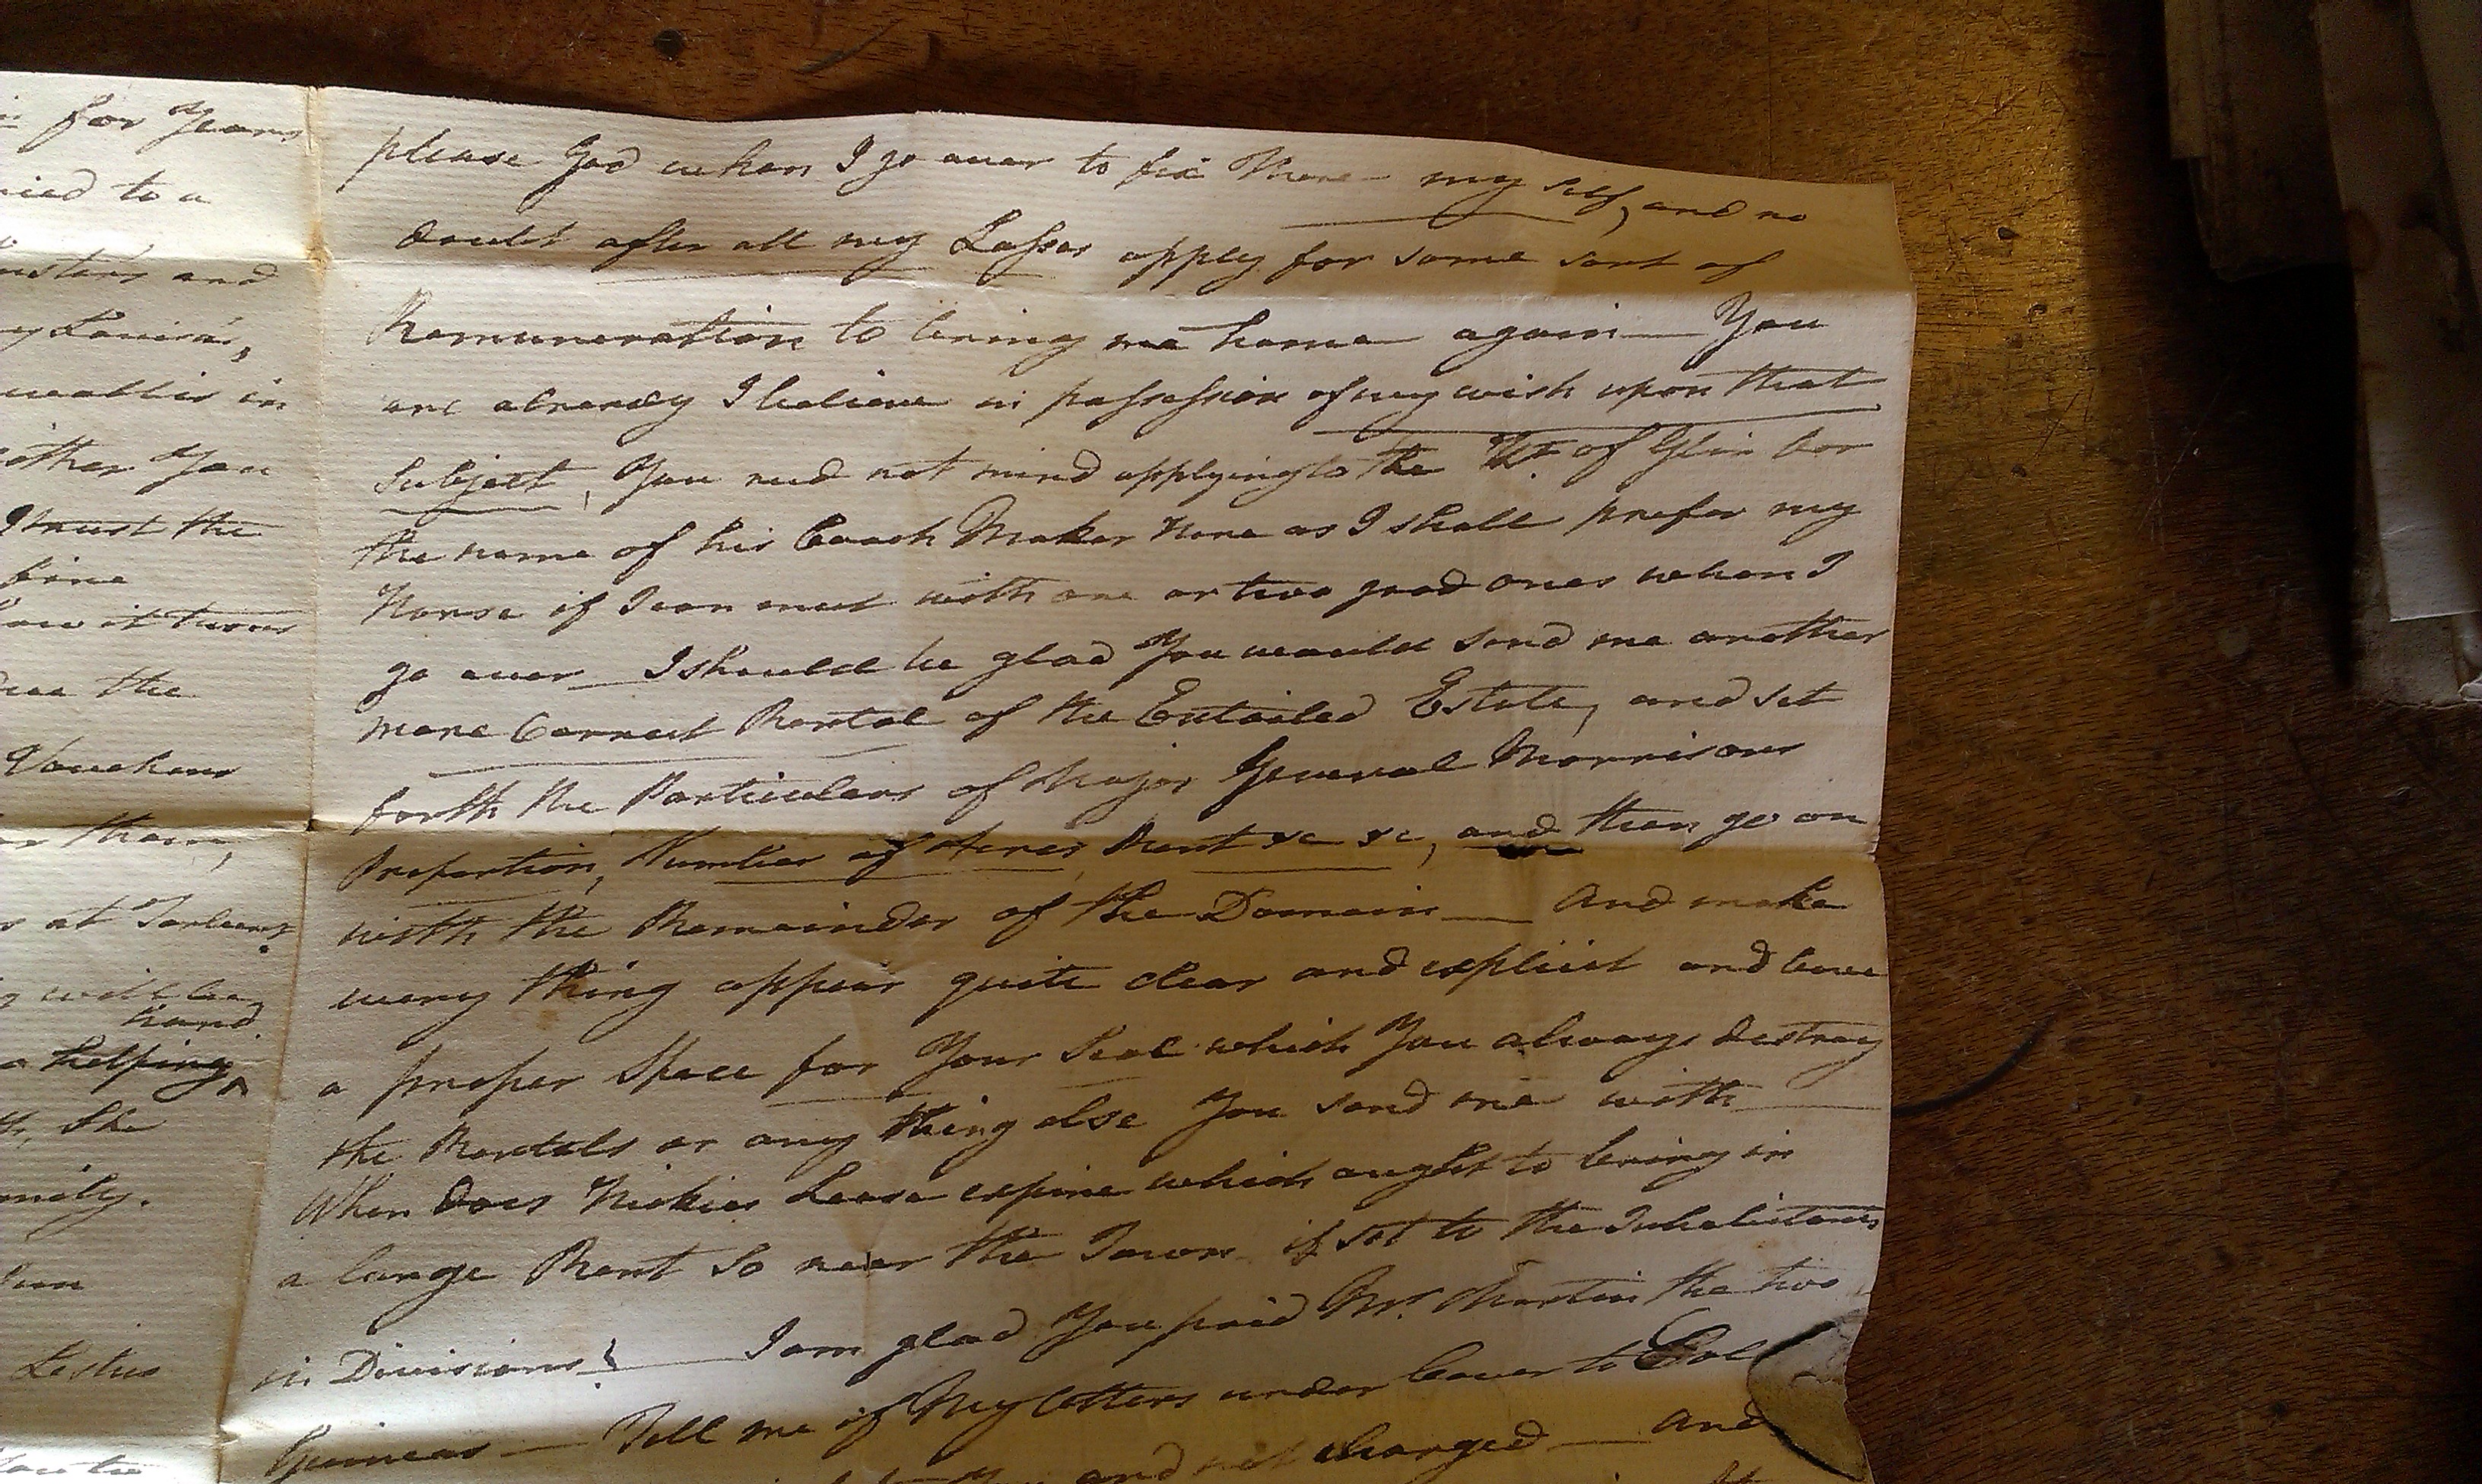 for Years
to a
and
Louisa's,
in
You
I trust the
fine
it turns
the
Vouchers
them,
at Tarbert.
will be
hand
a helping
She
Lestus
please God when I go over to fix there my self, and no
doubt after all my Losses apply for some sort of
Remuneration to bring me home again — You
are already I believe in possession of my wish upon that
Subject, You need not mind applying to the Kt. of Glin for
the name of his Coach Maker here as I shall prefer my
Horse if I can meet with one or two good ones when I
go over — I should be glad You would send me another
more Correct Rental of the Entailed Estate, and set
forth the Particulars of Major General Morrisons
Proportion, Number of Acres, Rent &c &c, and then go on
with the Remainder of the Domain — And make
every thing appear quite clear and explicit and leave
a proper Space for Your Seal which You always destroy
the Rentals or any thing else You send me with
When does Hickies Lease expire which ought to bring in
a large Rent so near the Town if set to the Inhabitants
in Divisions! — I am glad You paid Mr. Martin the two
Guineas — Tell me if My letters under Cover to Col
and not charged — And